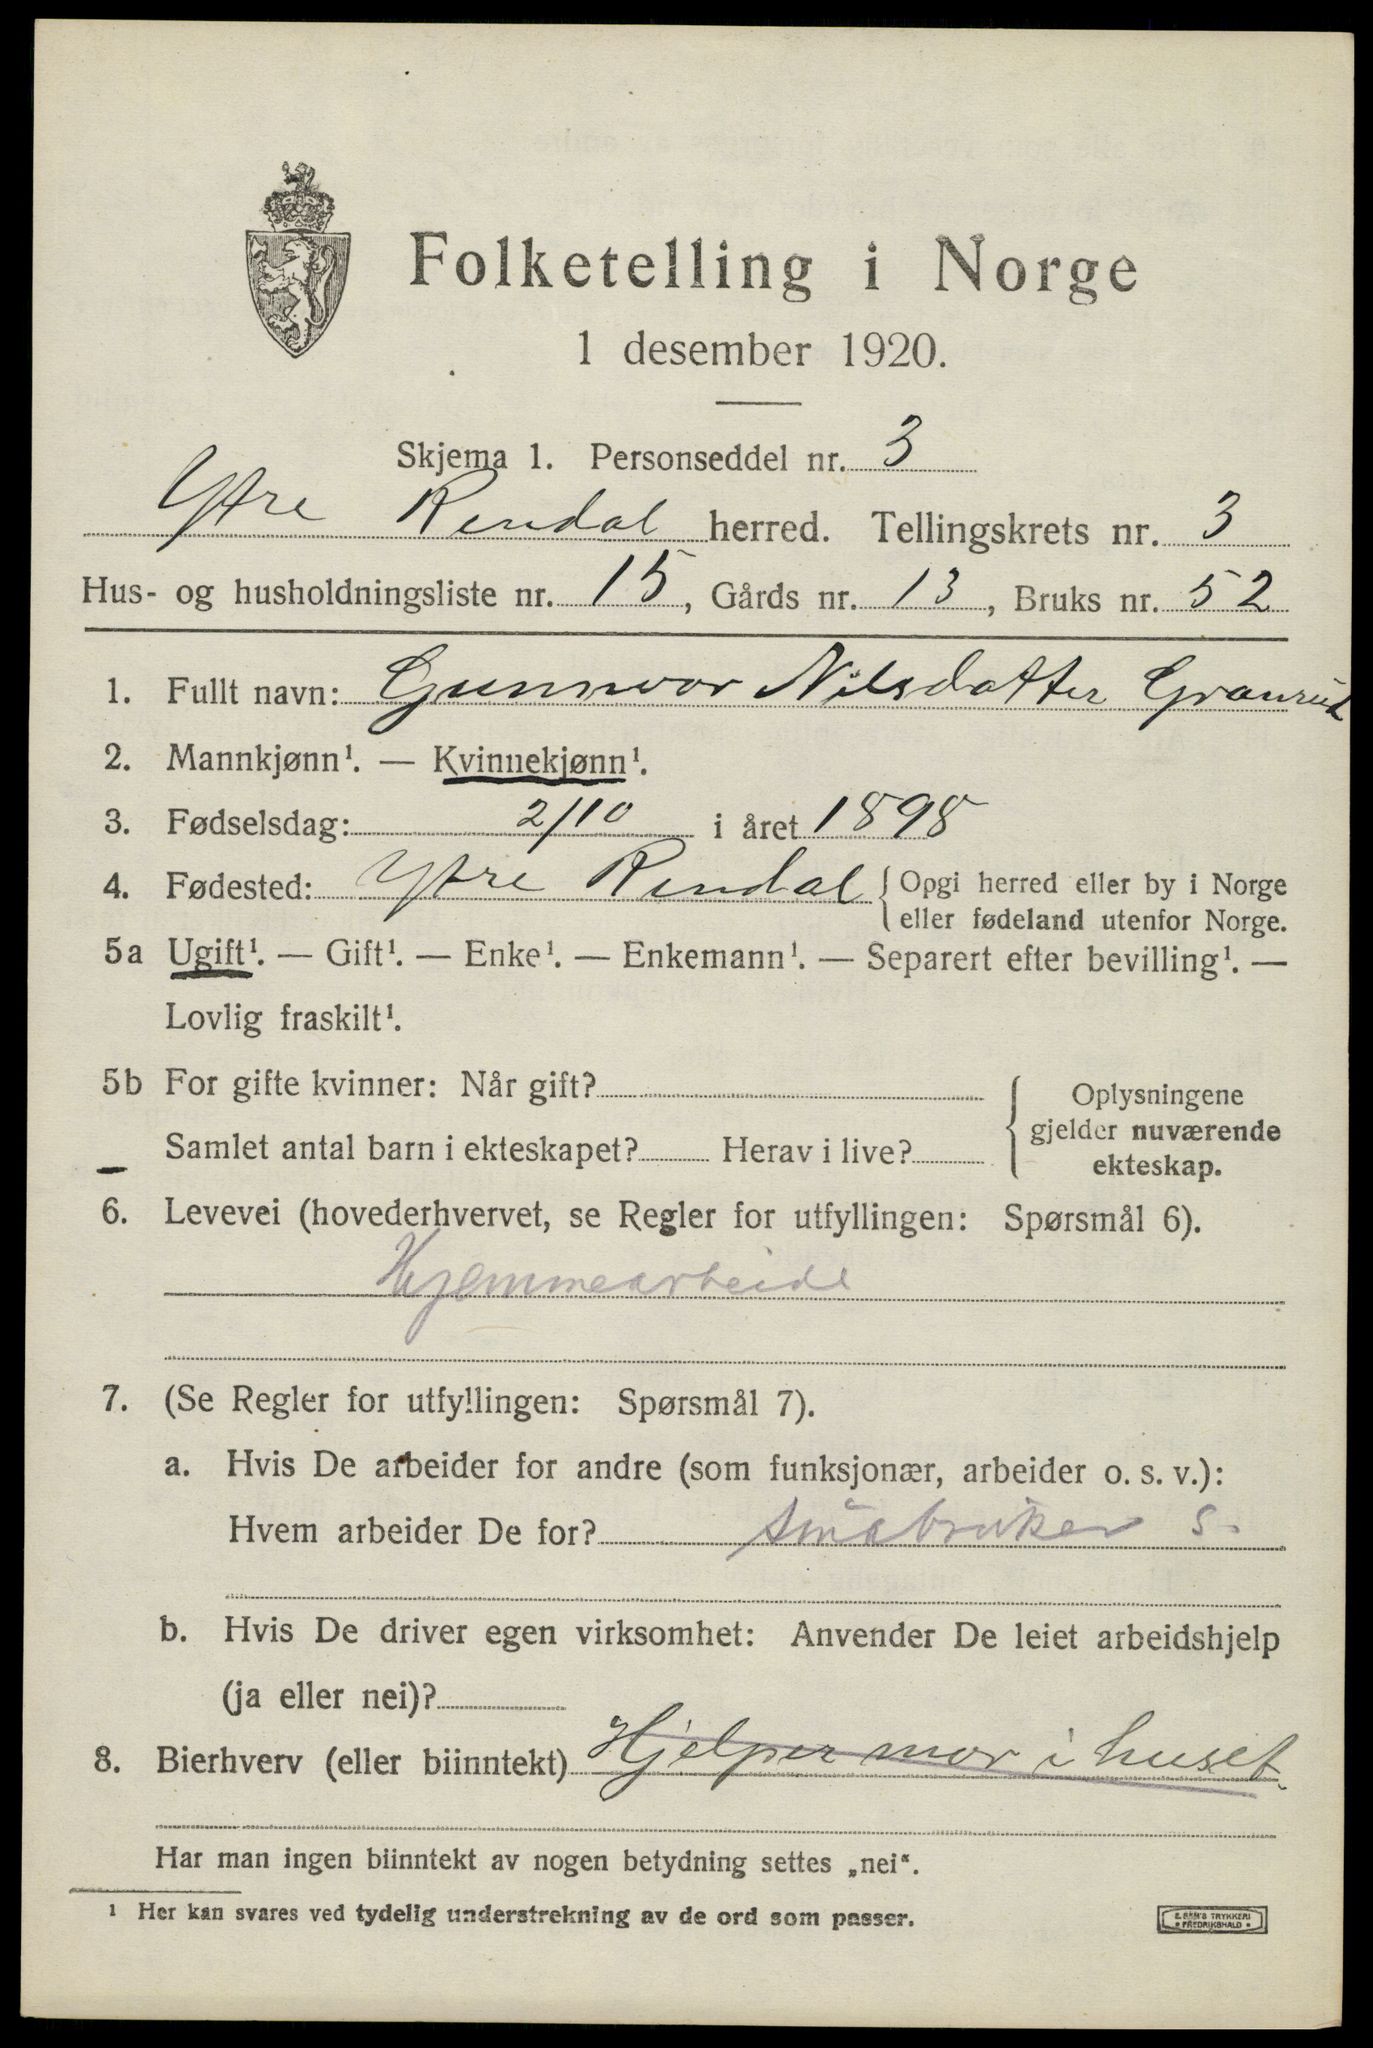 Folketelling i Norge
1 desember 1920.
Skjema 1. Personseddel nr. 3
Ytre Rendal herred. Tellingskrets nr. 3
Hus- og husholdningsliste nr. 15, Gårds nr. 13, Bruks nr. 52
1. Fullt navn: Gunnvor Nilsdatter Granrud
2. Mannkjønn¹. — Kvinnekjønn¹.
3. Fødselsdag: 2/10 i året 1898
4. Fødested: Ytre Rendal { Opgi herred eller by i Norge
eller fødeland utenfor Norge.
5a Ugift¹. — Gift¹. — Enke¹. — Enkemann¹. — Separert efter bevilling¹. —
Lovlig fraskilt¹.
5b For gifte kvinner: Når gift? { Oplysningene
gjelder nuværende
Samlet antal barn i ekteskapet? Herav i live? ekteskap.
6. Levevei (hovederhvervet, se Regler for utfyllingen: Spørsmål 6).
Hjemmearbeide
7. (Se Regler for utfyllingen: Spørsmål 7).
a. Hvis De arbeider for andre (som funksjonær, arbeider o. s. v.):
Hvem arbeider De for? småbruker s.
b. Hvis De driver egen virksomhet: Anvender De leiet arbeidshjelp
(ja eller nei)?
8. Bierhverv (eller biinntekt) Hjelper mor i huset.
Har man ingen biinntekt av nogen betydning settes „nei“.
¹ Her kan svares ved tydelig understrekning av de ord som passer.
E. SEM'S TRYKKERI
• FREDRIKSHALD •